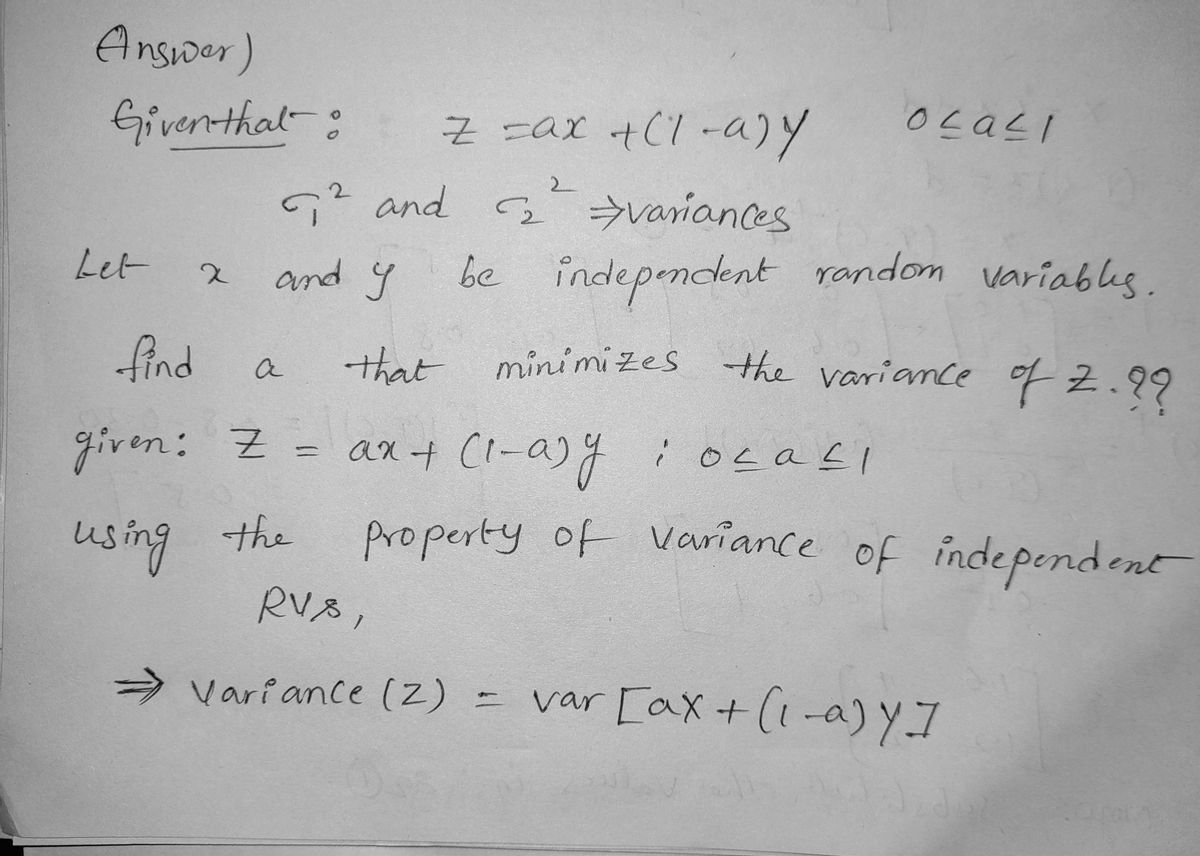 Answer)
Giventhat : z = ax + (1-a)y 0≤a≤1
σ₁² and σ₂² ⇒variances
Let x and y be independent random variables.
find a that minimizes the variance of z.??
given: z = ax + (1-a)y ; 0≤a≤1
using the property of variance of independent
RVs,
⇒ variance (z) = var [ax + (1-a) y]